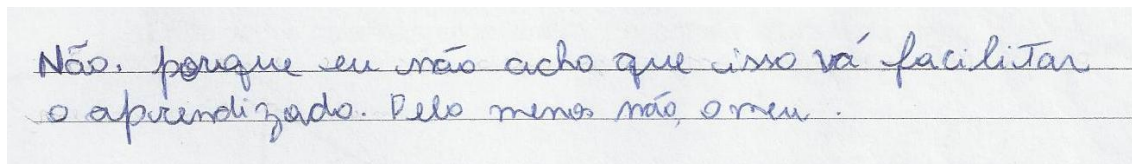 Não. porque eu não acho que isso vá facilitar
o aprendizado. Pelo menos não, o meu.